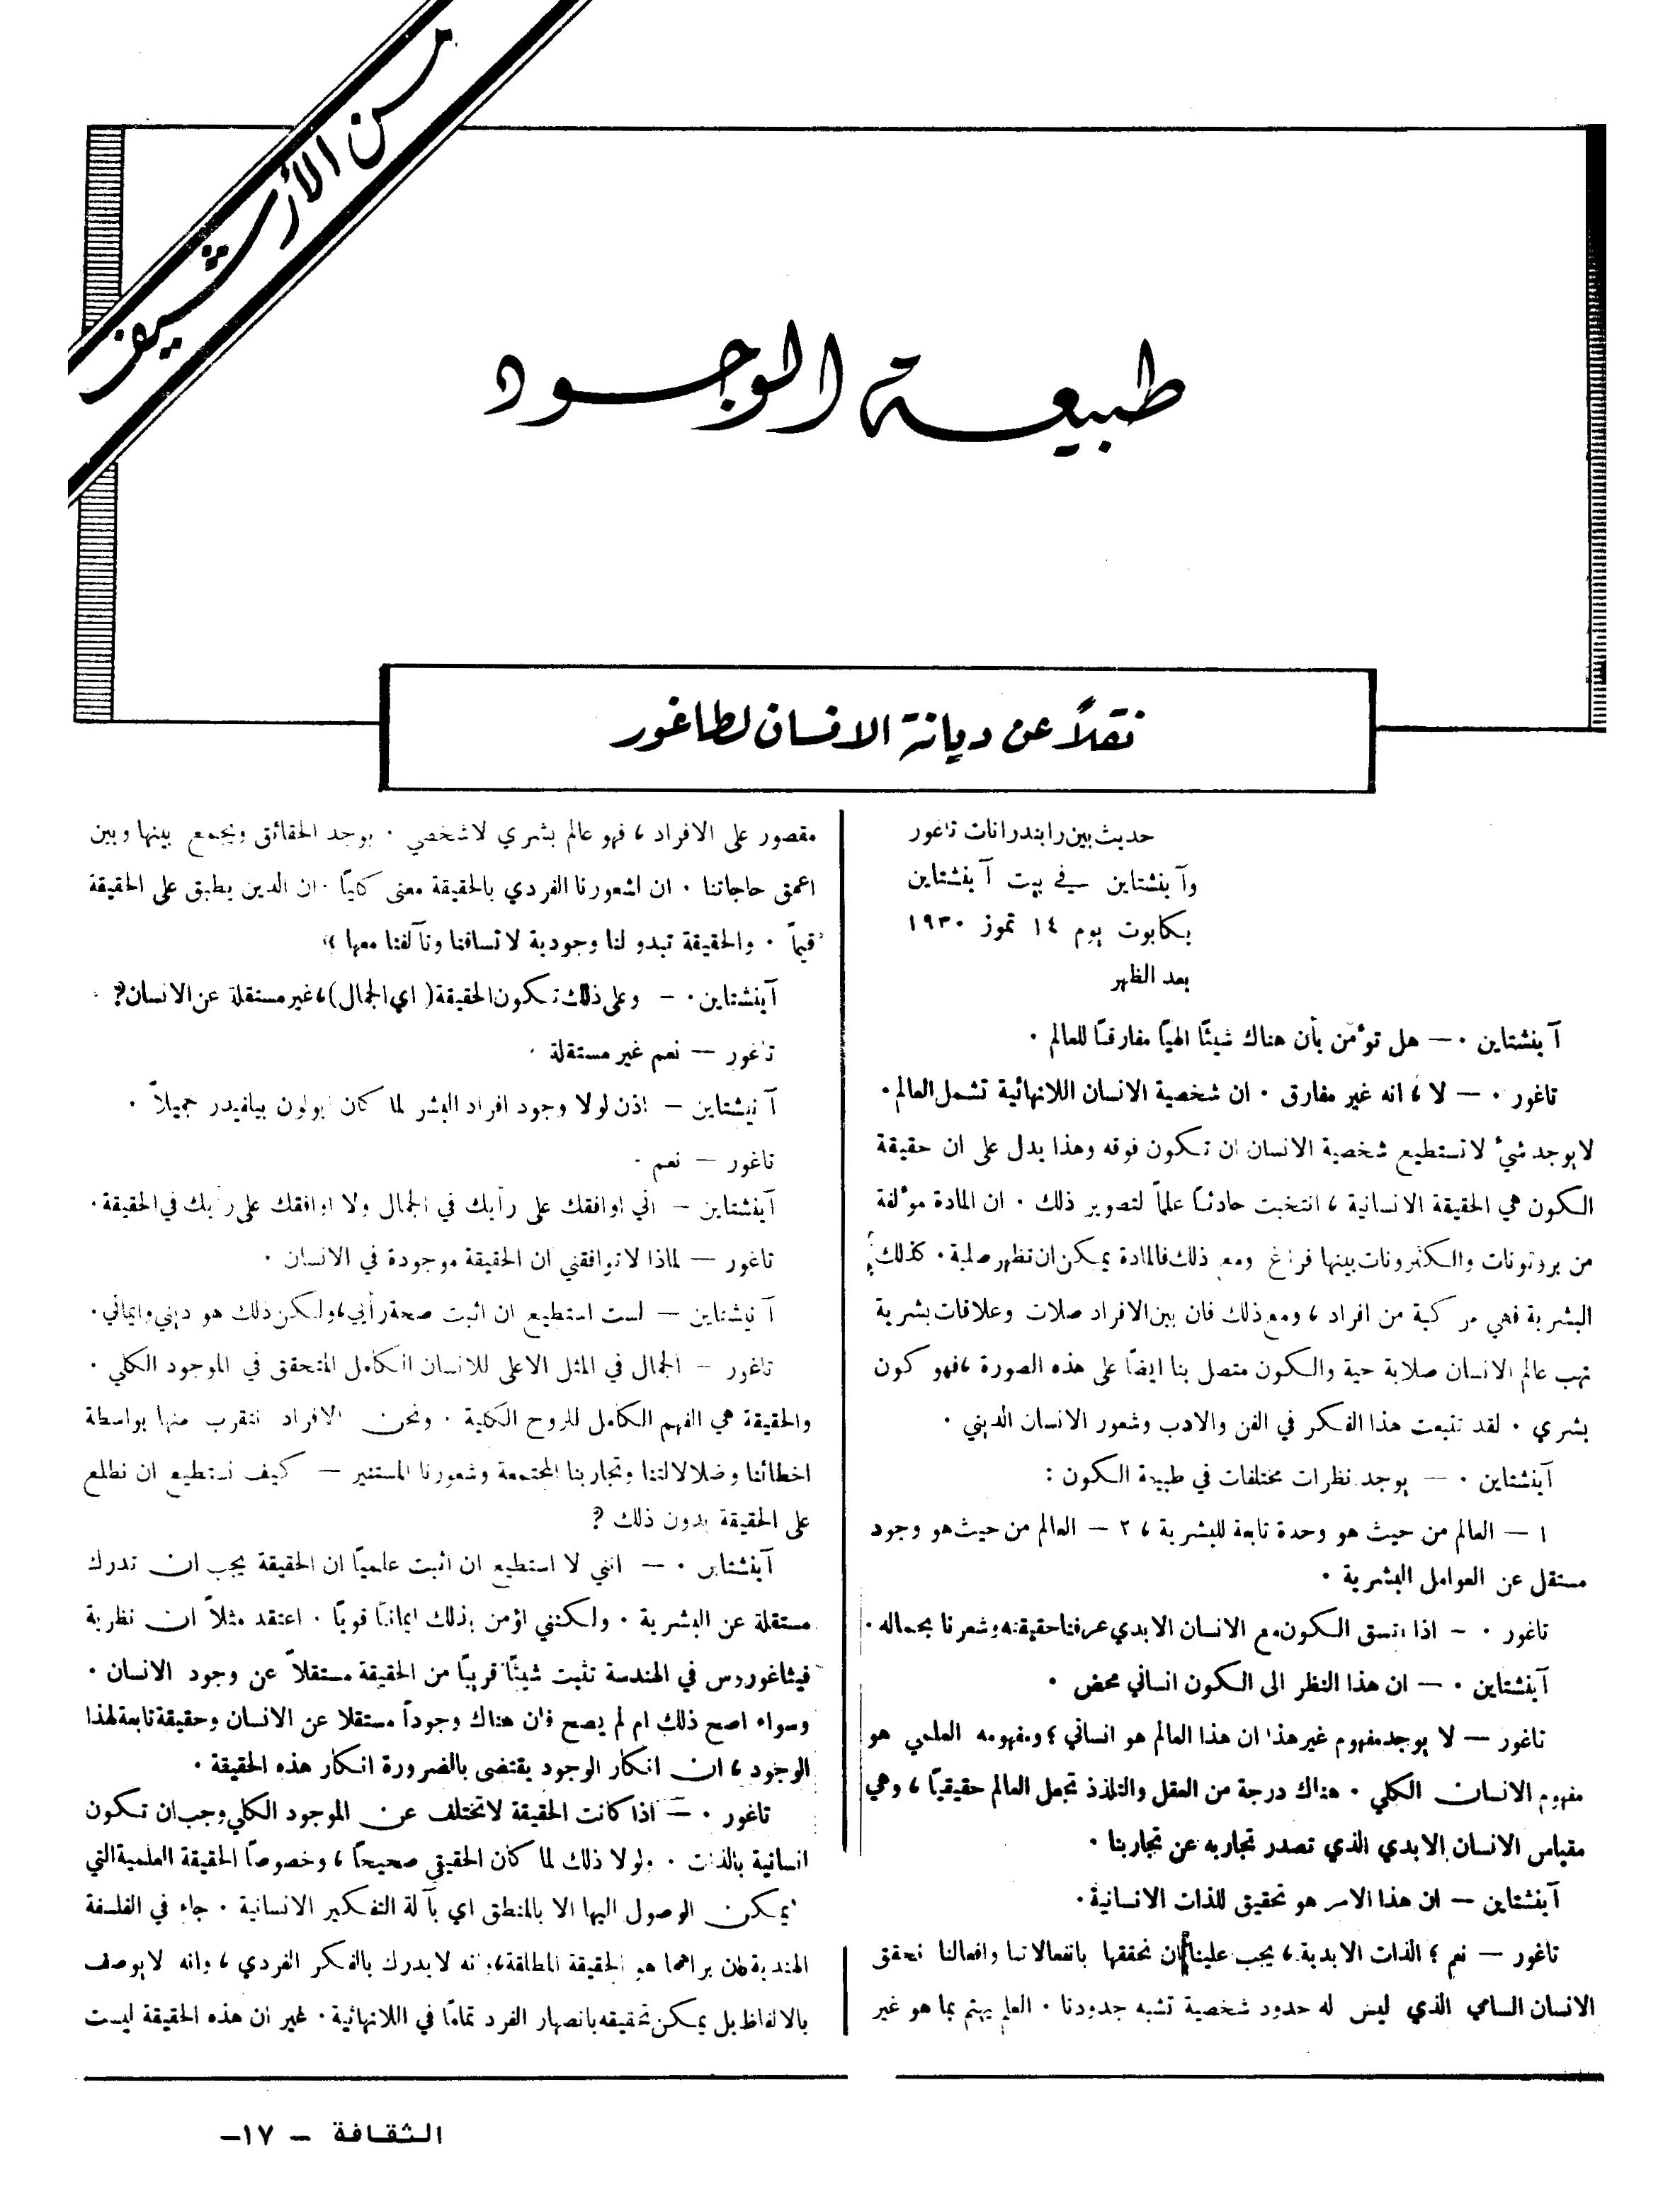 من الأرشيف
طبيعة الوجود
نقلاً عن ديانة الانسان لطاغور
حديث بين رابندرانات تاغور
وآينشتاين في بيت آينشتاين
بكابوت يوم ١٤ تموز ١٩٣٠
بعد الظهر
آينشتاين ٠ — هل تؤمن بأن هناك شيئًا الهيًا مفارقًا للعالم ٠
تاغور ٠ — لا ، انه غير مفارق ٠ ان شخصية الانسان اللانهائية تشمل العالم ٠
لا يوجد شيء لا تستطيع شخصية الانسان ان تكون فوقه وهذا يدل على ان حقيقة
الكون هي الحقيقة الانسانية ، انتخبت حادثًا علماً لتصوير ذلك ٠ ان المادة مؤلفة
من بروتونات والكترونات بينها فراغ ومع ذلك فالمادة يمكن ان تظهر صلبة ٠ كذلك
البشرية فهي مركبة من افراد ، ومع ذلك فان بين الافراد صلات وعلاقات بشرية
تهب عالم الانسان صلابة حية والكون متصل بنا ايضًا على هذه الصورة ، فهو كون
بشري ٠ لقد تتبعت هذا الفكر في الفن والادب وشعور الانسان الديني ٠
آينشتاين ٠ — يوجد نظرات مختلفات في طبيعة الكون :
١ — العالم من حيث هو وحدة تابعة للبشرية ، ٢ — العالم من حيث هو وجود
مستقل عن العوامل البشرية ٠
تاغور ٠ — اذا اتسق الكون مع الانسان الابدي عرفنا حقيقته وشعرنا بجماله ٠
آينشتاين ٠ — ان هذا النظر الى الكون انساني محض ٠
تاغور — لا يوجد مفهوم غير هذا ان هذا العالم هو انساني ؛ ومفهومه العلمي هو
مفهوم الانسان الكلي ٠ هناك درجة من العقل والتلذذ تجعل العالم حقيقيًا ، وهي
مقياس الانسان الابدي الذي تصدر تجاربه عن تجاربنا ٠
آينشتاين — ان هذا الامر هو تحقيق للذات الانسانية ٠
تاغور — نعم ؛ الذات الابدية ، يجب علينا ان نحققها بانفعالاتنا وافعالنا نحقق
الانسان السامي الذي ليس له حدود شخصية تشبه حدودنا ٠ العلم يهتم بما هو غير
مقصور على الافراد ، فهو عالم بشري لا شخصي ٠ يوحد الحقائق ويجمع بينها وبين
اعمق حاجاتنا ٠ ان لشعورنا الفردي بالحقيقة معنى كليًا ٠ ان الدين يطبق على الحقيقة
قيماً ٠ والحقيقة تبدو لنا وجودية لاتساقنا وتآلفنا معها ،
آينشتاين ٠ — وعلى ذلك تكون الحقيقة ( اي الجمال ) ، غير مستقلة عن الانسان ؟
تاغور — نعم غير مستقلة ٠
آنيشتاين — اذن لولا وجود افراد البشر لما كان ابولون بيلفيدر جميلاً ٠
تاغور — نعم ٠
آينشتاين — اني اوافقك على رأيك في الجمال ولا اوافقك على رأيك في الحقيقة ٠
تاغور — لماذا لا توافقني ان الحقيقة موجودة في الانسان ٠
آنيشتاين — لست استطيع ان اثبت صحة رأيي ، ولكن ذلك هو ديني وايماني ٠
تاغور — الجمال في المثل الاعلى للانسان الكامل المتحقق في الموجود الكلي ٠
والحقيقة هي الفهم الكامل للروح الكلية ٠ ونحن الافراد نتقرب منها بواسطة
اخطائنا وضلالالتنا وتجاربنا المجتمعة وشعورنا المستنير — كيف نستطيع ان نطلع
على الحقيقة بدون ذلك ؟
آينشتاين ٠ — انني لا استطيع ان اثبت علميًا ان الحقيقة يجب ان تدرك
مستقلة عن البشرية ٠ ولكنني اؤمن بذلك ايمانًا قويًا ٠ اعتقد مثلاً ان نظرية
فيثاغوروس في الهندسة تثبت شيئًا قريبًا من الحقيقة مستقلاً عن وجود الانسان ٠
وسواء اصح ذلك ام لم يصح فان هناك وجوداً مستقلا عن الانسان وحقيقة تابعة لهذا
الوجود ، ان انكار الوجود يقتضى بالضرورة انكار هذه الحقيقة ٠
تاغور ٠ — اذا كانت الحقيقة لا تختلف عن الموجود الكلي وجب ان تكون
انسانية بالذات ٠ ولولا ذلك لما كان الحقيقي صحيحًا ، وخصوصًا الحقيقة العلمية التي
يمكن الوصول اليها الا بالمنطق اي بآلة التفكير الانسانية ٠ جاء في الفلسفة
الهندية ان براهما هو الحقيقة المطلقة ، وانه لا يدرك بالفكر الفردي ، وانه لا يوصف
بالالفاظ بل يمكن تحقيقه بانصهار الفرد تمامًا في اللانهائية ٠ غير ان هذه الحقيقة ليست
الثقافة - ١٧-